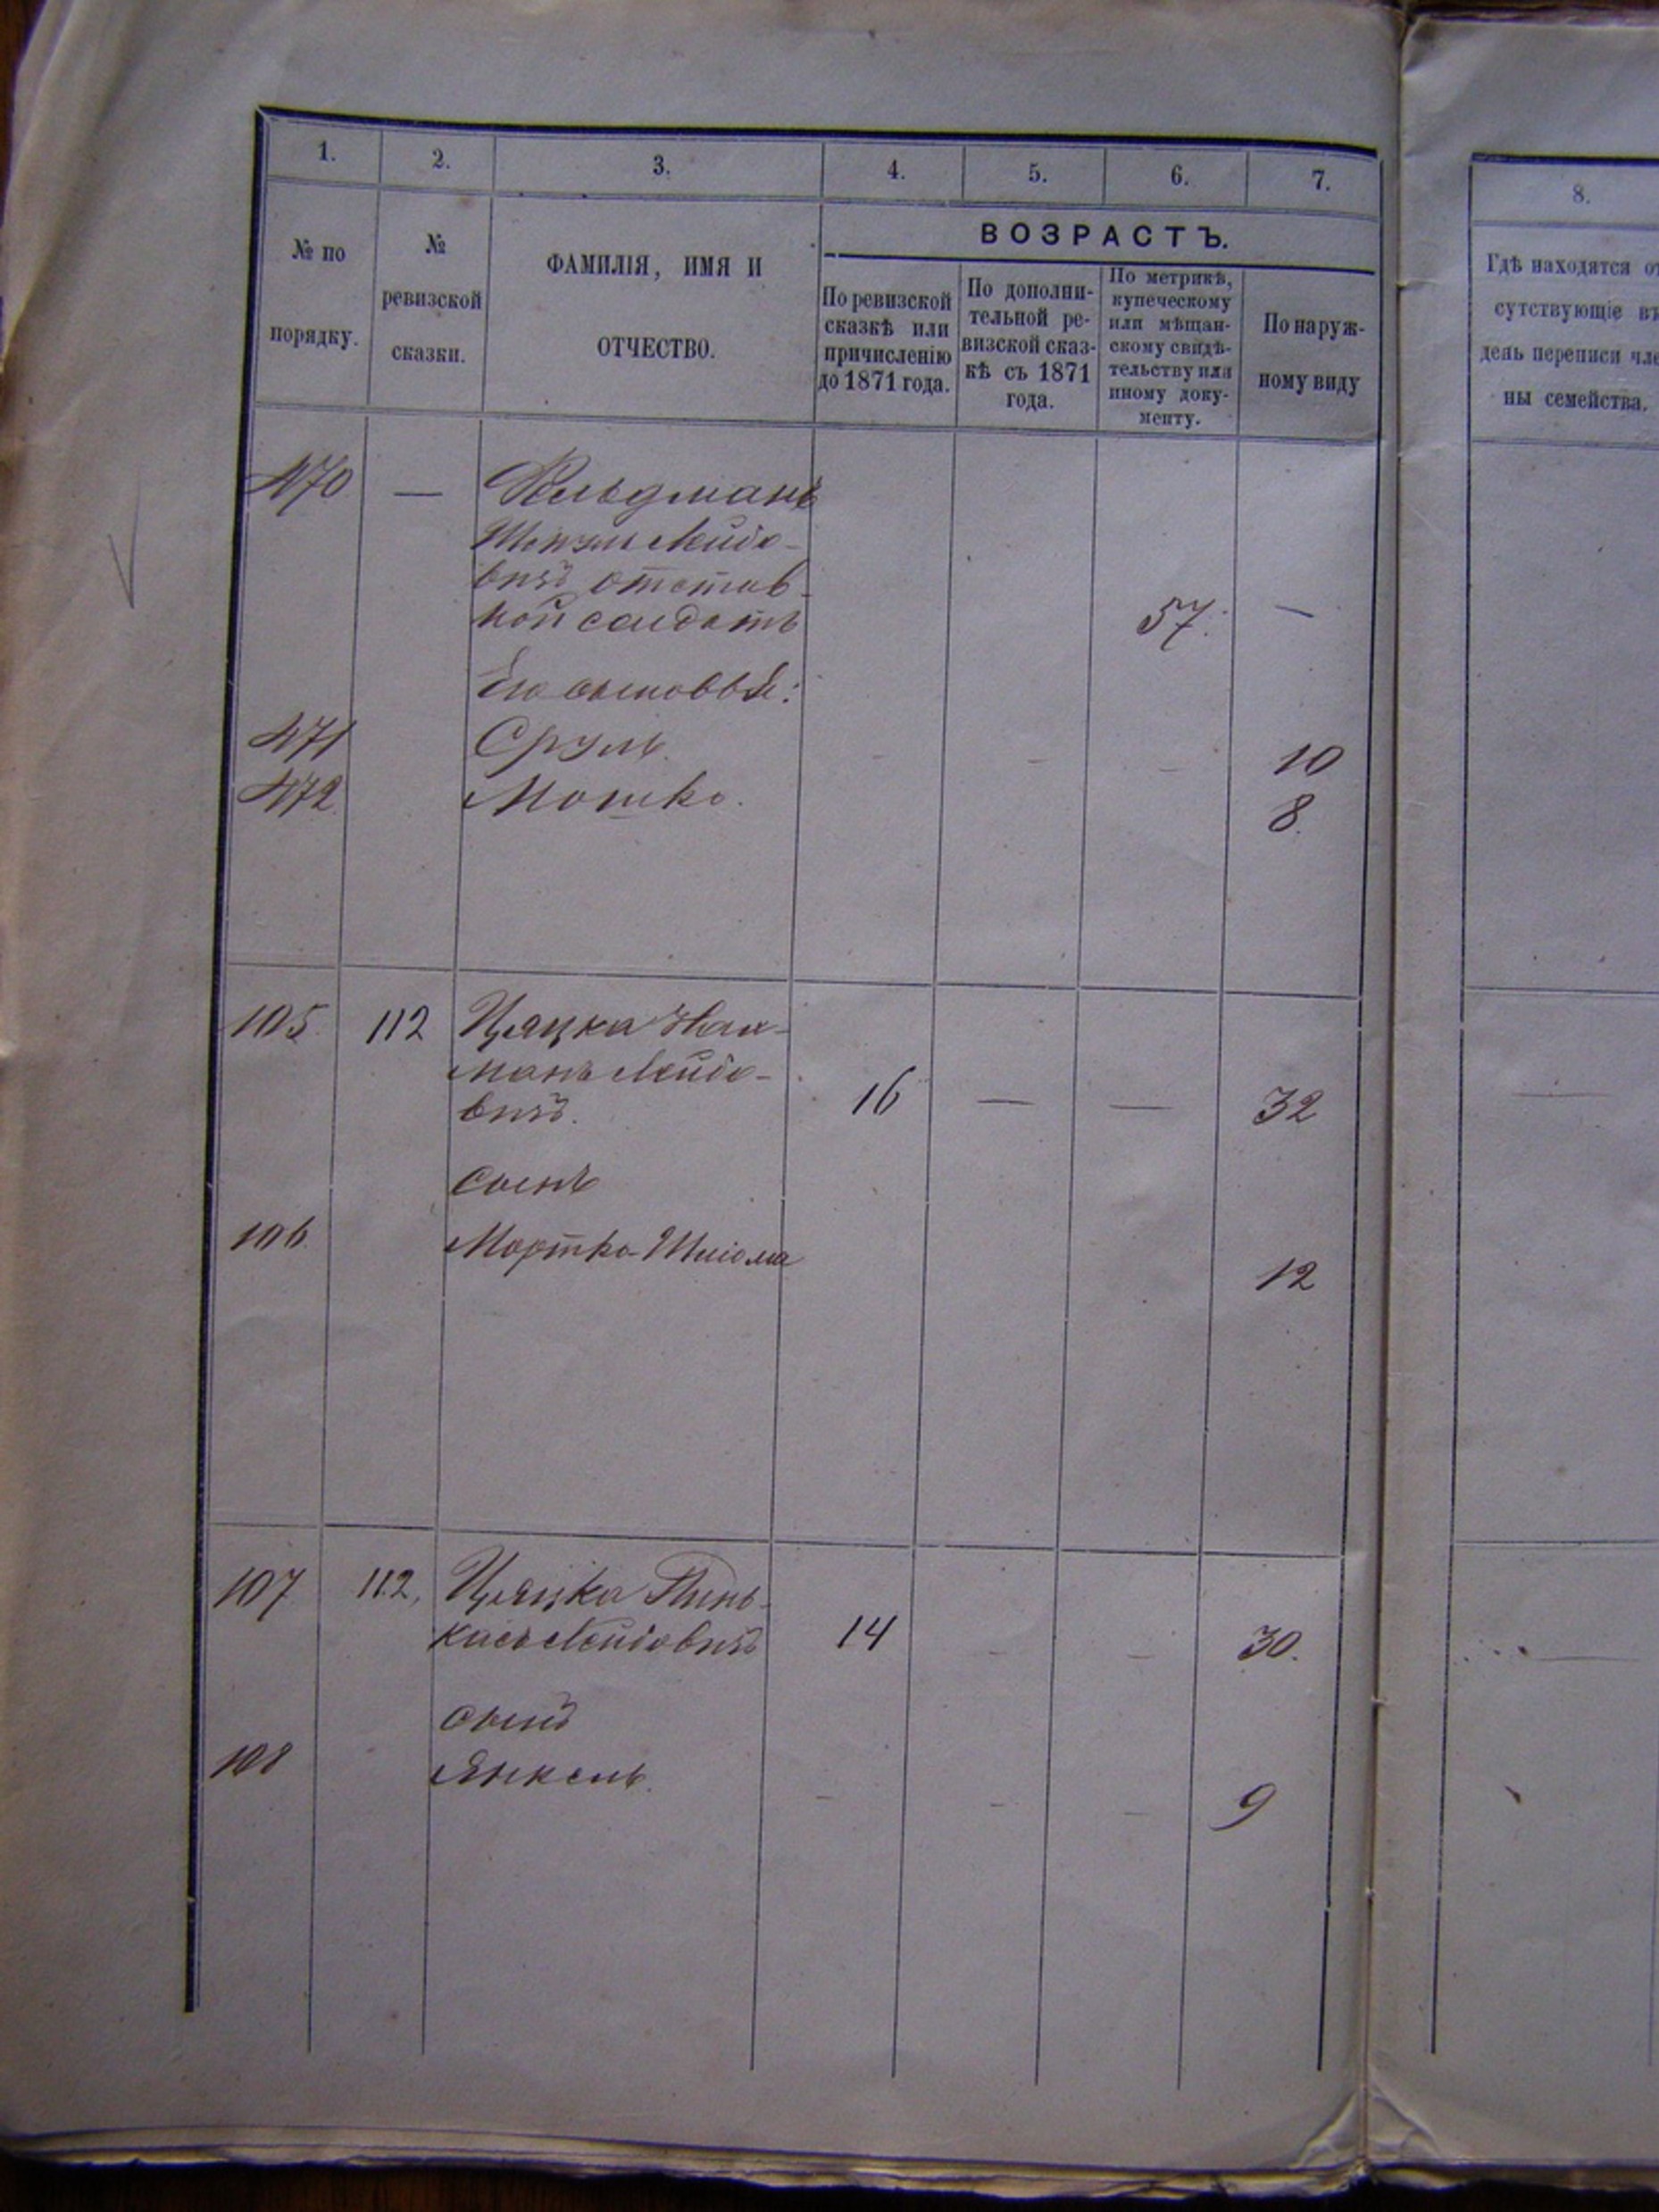 1. 2. 3. 4. 5. 6. 7.
№ по порядку.
№ ревизской сказки.
ФАМИЛІЯ, ИМЯ И
ОТЧЕСТВО.
ВОЗРАСТЪ.
По ревизской
сказкѣ или
причисленію
до 1871 года.
По дополни-
тельной ре-
визской сказ-
кѣ съ 1871
года.
По метрикѣ,
купеческому
или мѣщан-
скому свидѣ-
тельству или
иному доку-
менту.
По наруж-
ному виду
470 — Фельдманъ
Лейбо-
вичъ отстав-
ной солдатъ 57. —
Его сыновья:
471 Сруль. - - - 10
472 Мошко. 8.
105. 112 Цяцка Нах-
манъ Лейбо-
вичъ. 16 — — 32
сынъ
106. Мортко-Шліома 12
107 112, Цяцка Пинь-
касъ Лейбовичъ 14 - - 30.
сынъ
108 Янкель. - - - 9
8.
Гдѣ находятся от
сутствующіе въ
день переписи чле
ны семейства.